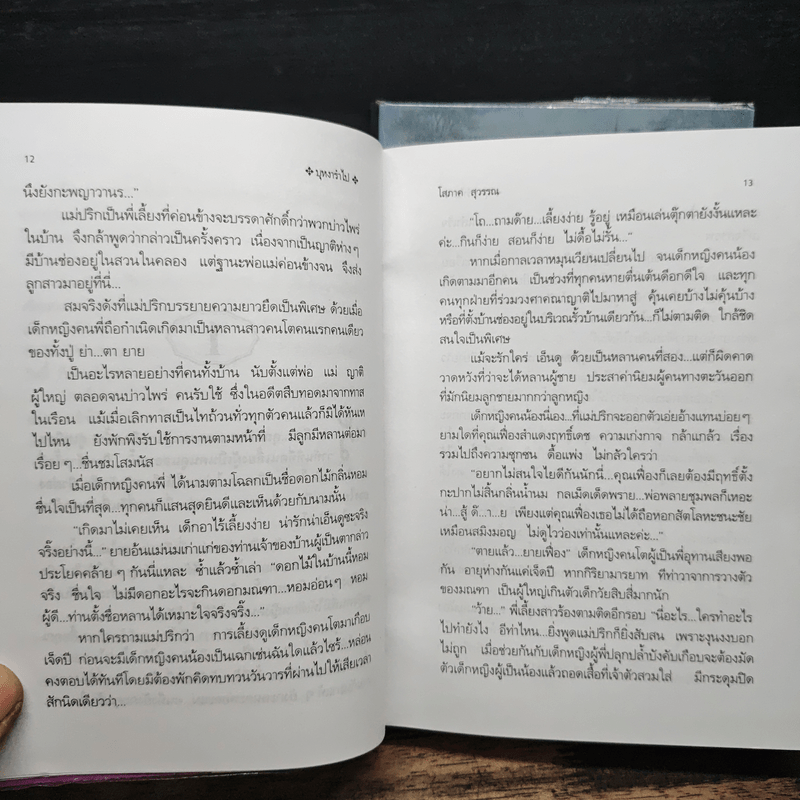 12
❖ บุหงารำไป ❖
นึงยังกะพญาวานร..."
แม่ปริกเป็นพี่เลี้ยงที่ค่อนข้างจะบรรดาศักดิ์กว่าพวกบ่าวไพร่
ในบ้าน จึงกล้าพูดว่ากล่าวเป็นครั้งคราว เนื่องจากเป็นญาติห่างๆ
มีบ้านช่องอยู่ในสวนในคลอง แต่ฐานะพ่อแม่ค่อนข้างจน จึงส่ง
ลูกสาวมาอยู่ที่นี่...
สมจริงดังที่แม่ปริกบรรยายความยาวยืดเป็นพิเศษ ด้วยเมื่อ
เด็กหญิงคนพี่ถือกำเนิดเกิดมาเป็นหลานสาวคนโตคนแรกคนเดียว
ของทั้งปู่ ย่า...ตา ยาย
เป็นอะไรหลายอย่างที่คนทั้งบ้าน นับตั้งแต่พ่อ แม่ ญาติ
ผู้ใหญ่ ตลอดจนบ่าวไพร่ คนรับใช้ ซึ่งในอดีตสืบทอดมาจากทาส
ในเรือน แม้เมื่อเลิกทาสเป็นไทถ้วนทั่วทุกตัวคนแล้วก็มิได้หันเห
ไปไหน ยังพักพึงรับใช้การงานตามหน้าที่ มีลูกมีหลานต่อมา
เรื่อยๆ...ชื่นชมโสมนัส
เมื่อเด็กหญิงคนพี่ ได้นามตามโฉลกเป็นชื่อดอกไม้กลิ่นหอม
ชื่นใจเป็นที่สุด...ทุกคนก็แสนสุดยินดีและเห็นด้วยกับนามนั้น
"เกิดมาไม่เคยเห็น เด็กอาไร้เลี้ยงง่าย น่ารักน่าเอ็นดูซะจริง
จริ๊งอย่างนี้..." ยายอ้นแม่นมเก่าแก่ของท่านเจ้าของบ้านผู้เป็นตากล่าว
ประโยคคล้ายๆ กันนี่แหละ ซ้ำแล้วซ้ำเล่า "ดอกไม้ในบ้านนี้หอม
จริง ชื่นใจ ไม่มีดอกอะไรจะกินดอกมณฑา...หอมอ่อนๆ หอม
ผู้ดี...ท่านตั้งชื่อหลานได้เหมาะใจจริงจริ๊ง..."
หากใครถามแม่ปริกว่า การเลี้ยงดูเด็กหญิงคนโตมาเกือบ
เจ็ดปี ก่อนจะมีเด็กหญิงคนน้องเป็นเฉกเช่นฉันใดแล้วไซร้...หล่อน
คงตอบได้ทันทีโดยมิต้องพักคิดทบทวนวันวารที่ผ่านไปให้เสียเวลา
สักนิดเดียวว่า...
โสภาค สุวรรณ
13
"โถ...ถามด๊าย...เลี้ยงง่าย รู้อยู่ เหมือนเล่นตุ๊กตายังงั้นแหละ
ค่ะ...กินก็ง่าย สอนก็ง่าย ไม่ดื้อไม่รั้น..."
หากเมื่อกาลเวลาหมุนเวียนเปลี่ยนไป จนเด็กหญิงคนน้อง
เกิดตามมาอีกคน เป็นช่วงที่ทุกคนหายตื่นเต้นดีอกดีใจ และทุก
คนทุกฝ่ายที่ร่วมวงศาคณาญาติไปมาหาสู่ คุ้นเคยบ้างไม่คุ้นบ้าง
หรือที่ตั้งบ้านช่องอยู่ในบริเวณรั้วบ้านเดียวกัน...ก็ไม่ตามติด ใกล้ชิด
สนใจเป็นพิเศษ
แม้จะรักใคร่ เอ็นดู ด้วยเป็นหลานคนที่สอง...แต่ก็ผิดคาด
วาดหวังที่ว่าจะได้หลานผู้ชาย ประสาค่านิยมผู้คนทางตะวันออก
ที่มักนิยมลูกชายมากกว่าลูกหญิง
เด็กหญิงคนน้องนี่เอง...ที่แม่ปริกจะออกตัวเอ่ยอ้างแทนบ่อยๆ
ยามใดที่คุณเฟื่องสำแดงฤทธิ์เดช ความเก่งกาจ กล้าแกล้ว เรื่อง
รวมไปถึงความซุกซน ดื้อแพ่ง ไม่กลัวใครว่า
"อยากไม่สนใจไยดีกันนักนี่...คุณเฟื่องก็เลยต้องมีฤทธิ์ตั้ง
กะปากไม่สิ้นกลิ่นน้ำนม กลเม็ดเด็ดพราย...พ่อพลายชุมพลก็เหอะ
น่า...สู้ ด๊...า...ย เพียงแต่คุณเฟื่องเธอไม่ได้ถือหอกสัตโลหะชนะชัย
เหมือนสมิงมอญ ไม่ดูไวว่องเท่านั้นแหละค่ะ..."
"ตายแล้ว...ยายเฟื่อง" เด็กหญิงคนโตผู้เป็นพี่อุทานเสียงพอ
กัน อายุห่างกันแค่เจ็ดปี หากกิริยามารยาท ทีท่าวาจาการวางตัว
ของมณฑา เป็นผู้ใหญ่เกินตัวเด็กวัยสิบสี่มากนัก
"ว้าย..." พี่เลี้ยงสาวร้องตามติดอีกรอบ "นี่อะไร...ใครทำอะไร
ไปทำยังไง อีท่าไหน...ยิ่งพูดแม่ปริกก็ยิ่งสับสน เพราะงุนงงบอก
ไม่ถูก เมื่อช่วยกันกับเด็กหญิงผู้พี่ปลุกปล้ำบังคับเกือบจะต้องมัด
ตัวเด็กหญิงผู้เป็นน้องแล้วถอดเสื้อที่เจ้าตัวสวมใส่ มีกระดุมปิด